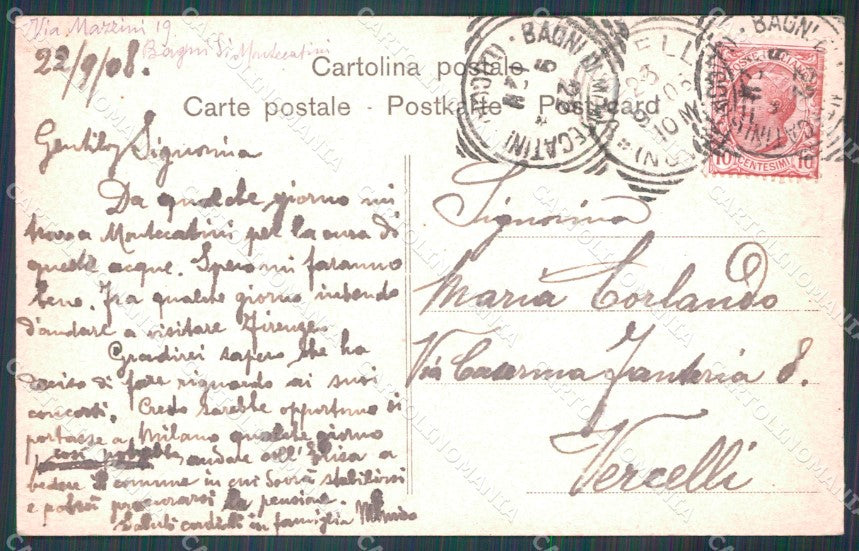 Via Mazzini 19
Bagni di Montecatini
22/9/08.
Cartolina postale
Carte postale - Postkarte - Post-card
Gentil Signorina
Da qualche giorno mi
trovo a Montecatini per la cura di
queste acque. Spero mi faranno
bene. Fra qualche giorno intendo
d'andare a visitare Firenze
Gradirei sapere che ha
deciso di fare riguardo ai suoi
concorsi. Credo sarebbe opportuno si
portasse a Milano qualche giorno
così potrebbe andare all'
vedere il comune in cui dovrà stabilirsi
e potrà procurarsi la pensione.
Saluti cordiali in famiglia
Signorina
Maria Corlando
Via Caserma Fanteria 8.
Vercelli
BAGNI DI MONTECATINI
10 CENTESIMI 10
CARTOLINOMANIA